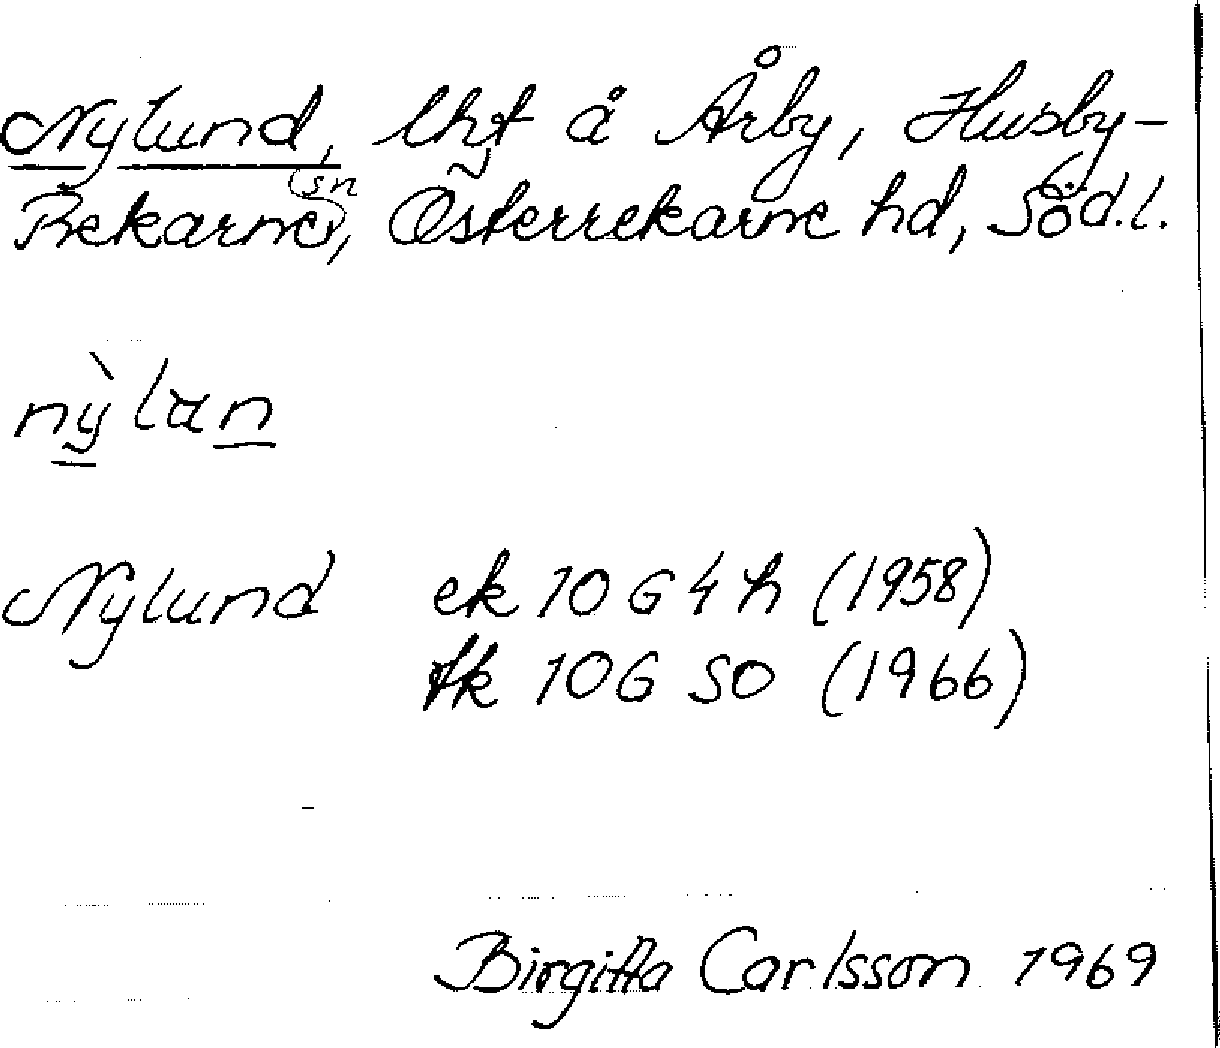 Nylund, lhgt å Årby, Husby-
Rekarne sn, Österrekarne hd, Söd.l.
nỳlan
Nylund ek 10G4h (1958)
tk 10G SO (1966)
Birgitta Carlsson 1969